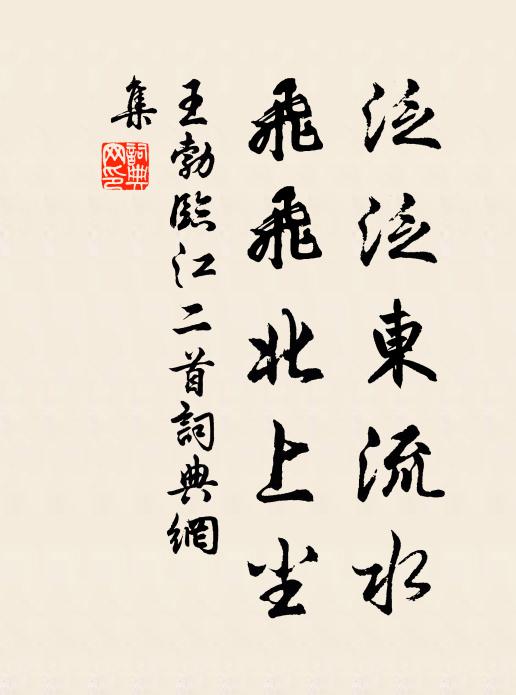 泛泛東流水
飛飛北上尘
王勃臨江二首詞典網
集
詞典網印